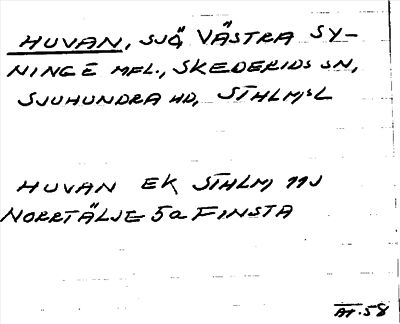 HUVAN, SJÖ, VÄSTRA SY-
NINGE MFL., SKEDERIDS SN,
SJUHUNDRA HD, STHLMS L
HUVAN EK STHLM 11J
NORRTÄLJE 5a FINSTA
AT.58